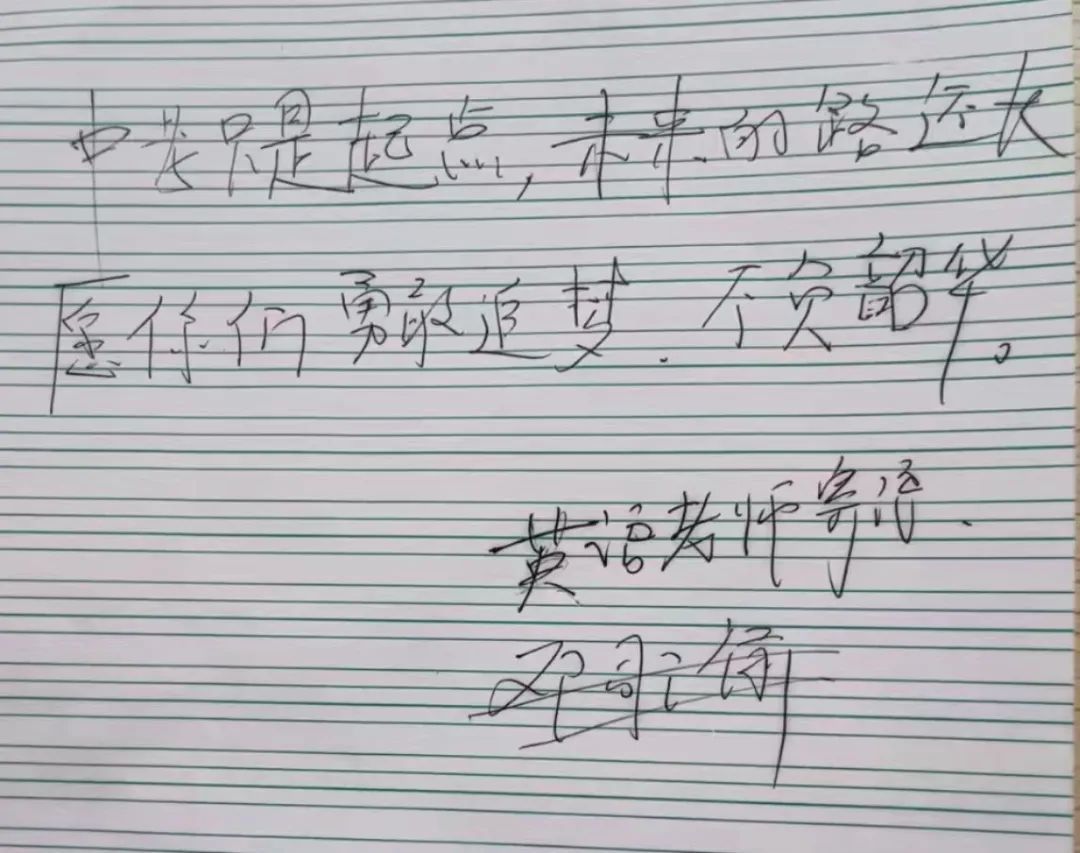 中考只是起点,未来的路还长
愿你们勇敢追梦.不负韶华。
英语老师寄语.